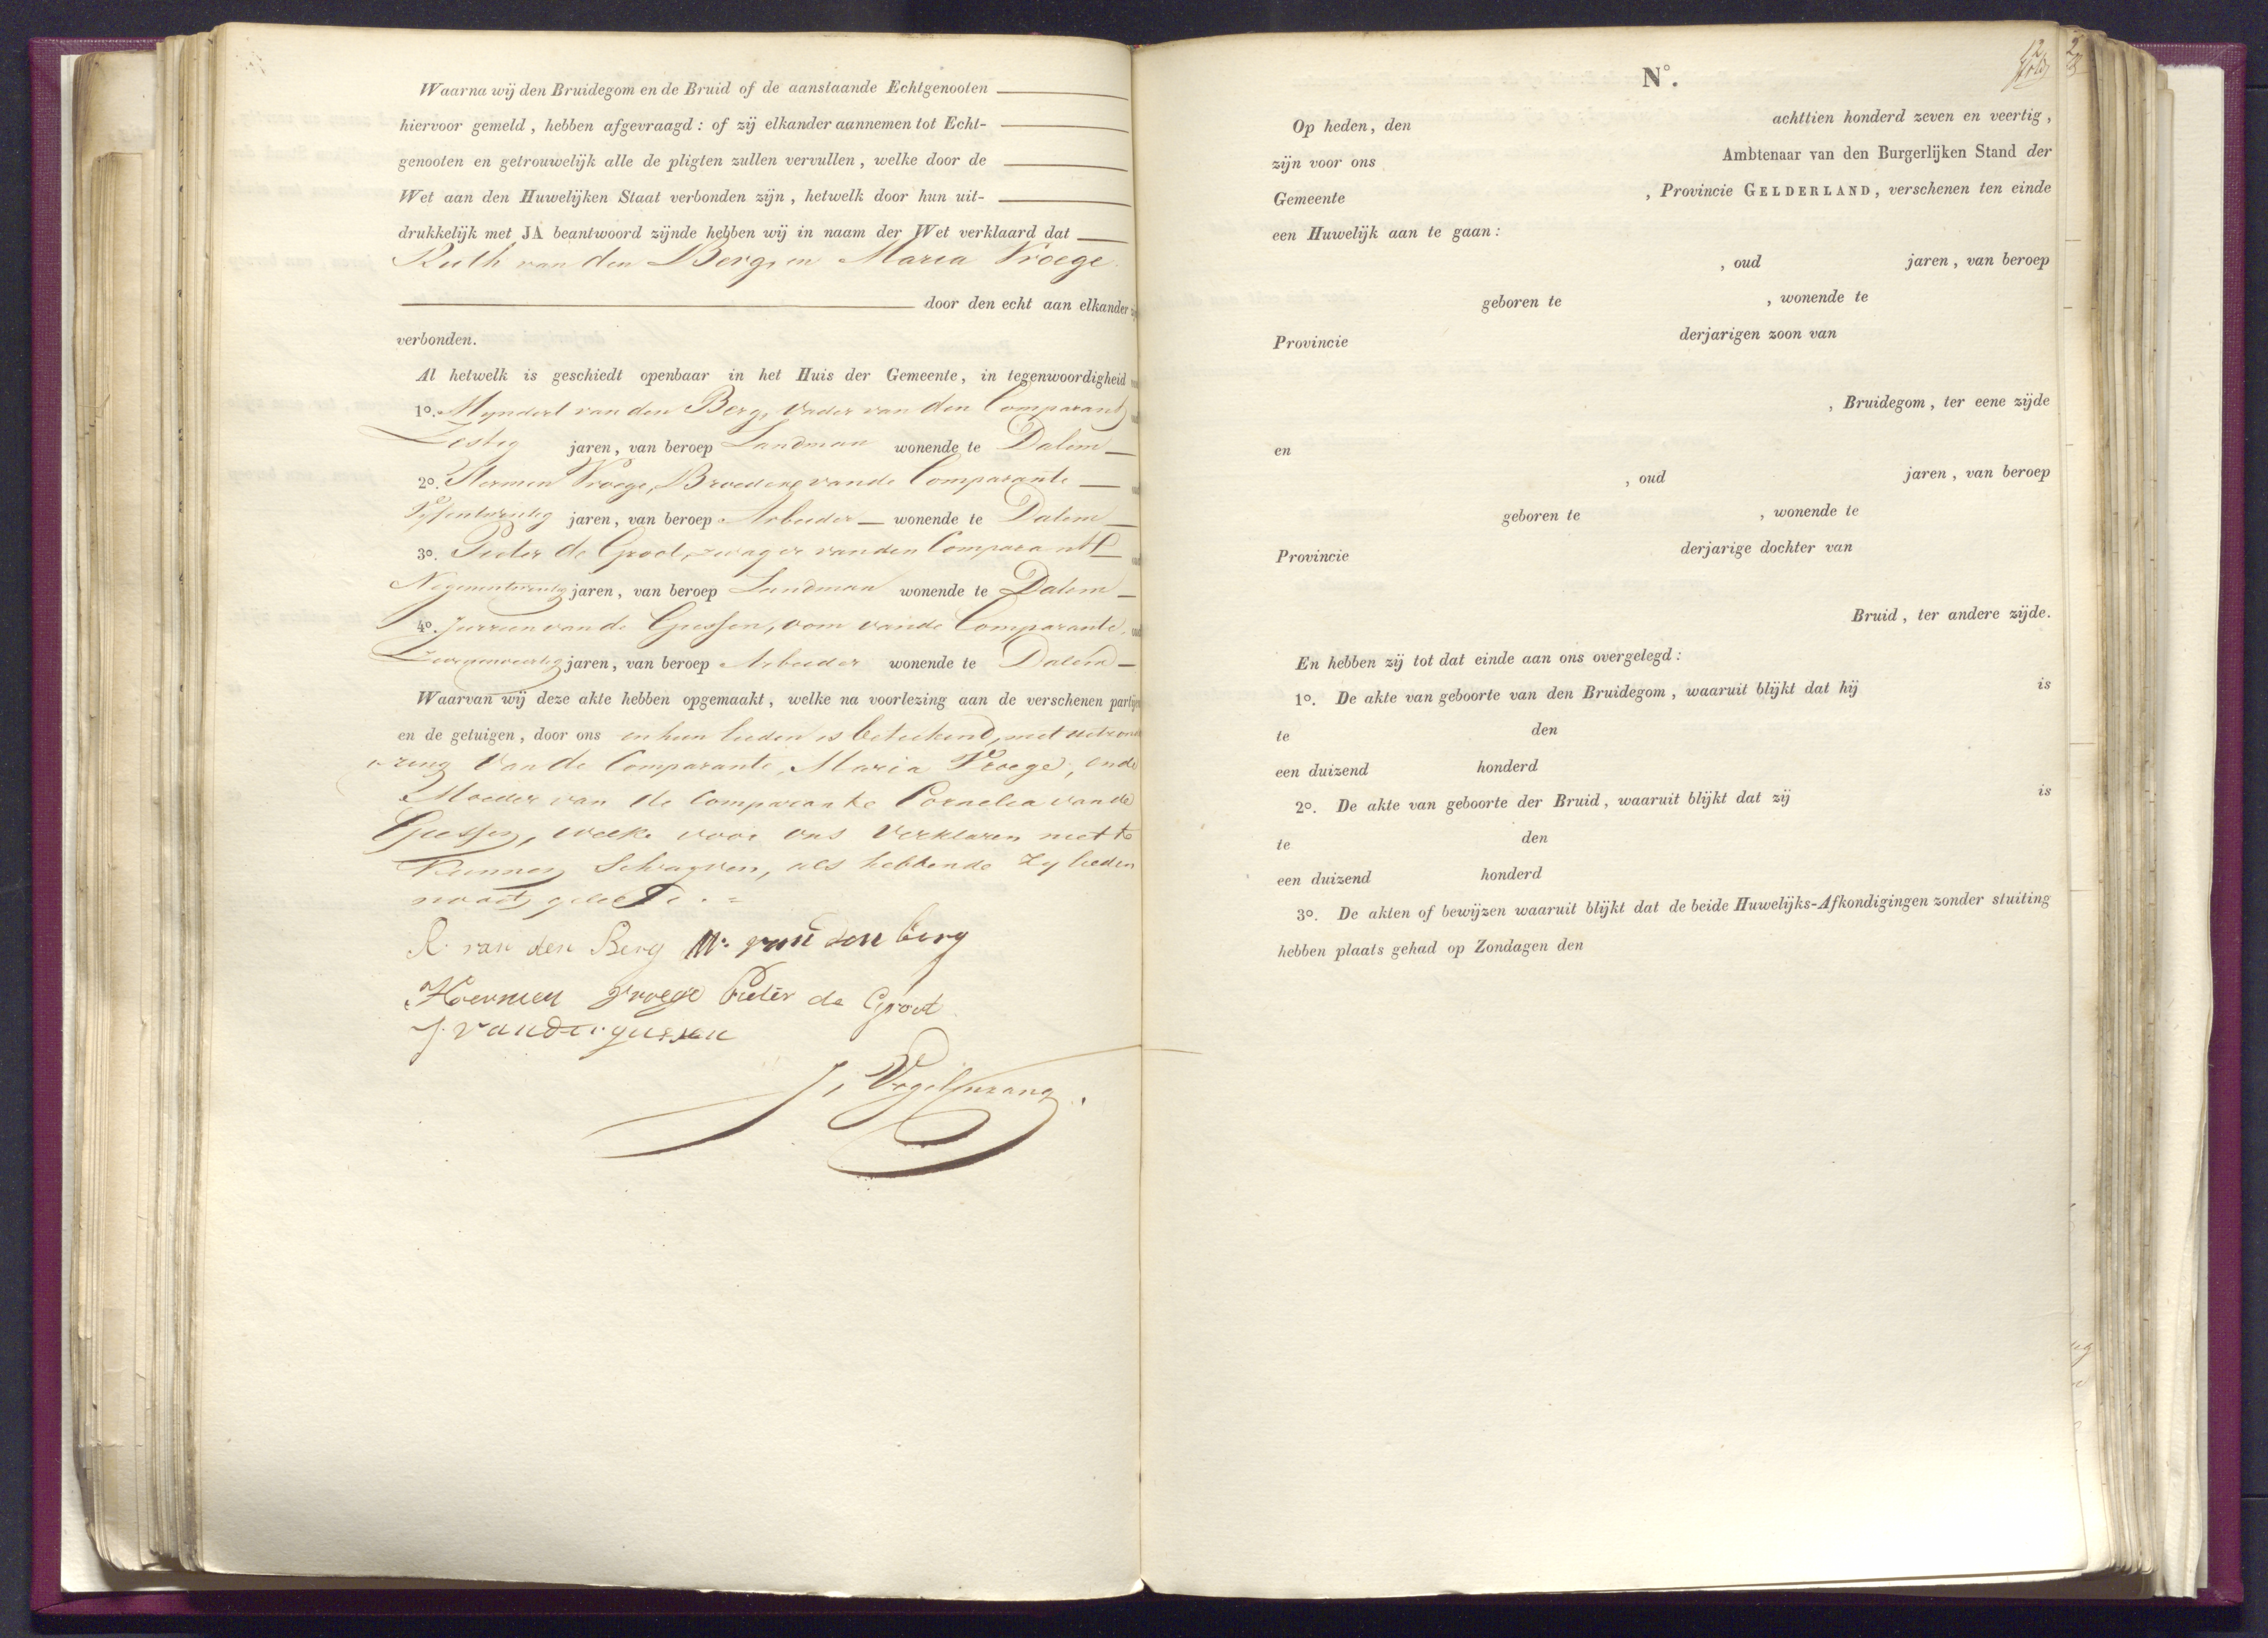 Waarna wij den Bruidegom en de Bruid of de aanstaande Echtgenooten
hiervoor gemeld, hebben afgevraagd: of zij elkander aannemen tot Echt-
genooten en getrouwelijk alle de pligten zullen vervullen, welke door de
Wet aan den Huwelijken Staat verbonden zijn, hetwelk door hun uit-
drukkelijk met JA beantwoord zijnde hebben wij in naam der Wet verklaard dat
Ruth van den Berg, en Maria Vroege
door den echt aan elkander
verbonden.
Al hetwelk is geschiedt openbaar in het Huis der Gemeente, in tegenwoordigheid
1o. Myndert van den Berg, Vader van den Comparant,
Zestig jaren, van beroep Landman wonende te Dalem
2o. Hermen Vroege, Broeder vande Comparante
Vyfentwintig jaren, van beroep Arbeider wonende te Dalem
3o. Pieter de Groot, zwager vanden Comparant
Negenentwintig jaren, van beroep Landman wonende te Dalem
4o. Jurrien van de Giessen, oom vande Comparante,
jaren, van beroep Arbeider wonende te Dalem
Waarvan wij deze akte hebben opgemaakt, welke na voorlezing aan de verschenen
en de getuigen, door ons en hun lieden is beteekend, met uitzond
ering van de Comparante, Maria Vroege, en de
Moeder van de Comparante Cornelia van de
Giessen, welke voor ons verklaren niet te
Kunnen Schryven, als hebbende zy lieden
nooit geleerd. =
R. van den Berg M. van den berg
Hermen Vroege Pieter de Groot
J. van de giessen
J. Vogelenzang.
No.
12
Op heden, den achttien honderd zeven en veertig,
zijn voor ons Ambtenaar van den Burgerlijken Stand der
Gemeente , Provincie GELDERLAND, verschenen ten einde
een Huwelijk aan te gaan:
, oud jaren, van beroep
geboren te , wonende te
Provincie derjarigen zoon van
, Bruidegom, ter eene zijde
en
, oud jaren, van beroep
geboren te , wonende te
Provincie derjarige dochter van
Bruid, ter andere zijde.
En hebben zij tot dat einde aan ons overgelegd:
1o. De akte van geboorte van den Bruidegom, waaruit blijkt dat hij is
te den
een duizend honderd
2o. De akte van geboorte der Bruid, waaruit blijkt dat zij is
te den
een duizend honderd
3o. De akten of bewijzen waaruit blijkt dat de beide Huwelijks-Afkondigingen zonder stuiting
hebben plaats gehad op Zondagen den